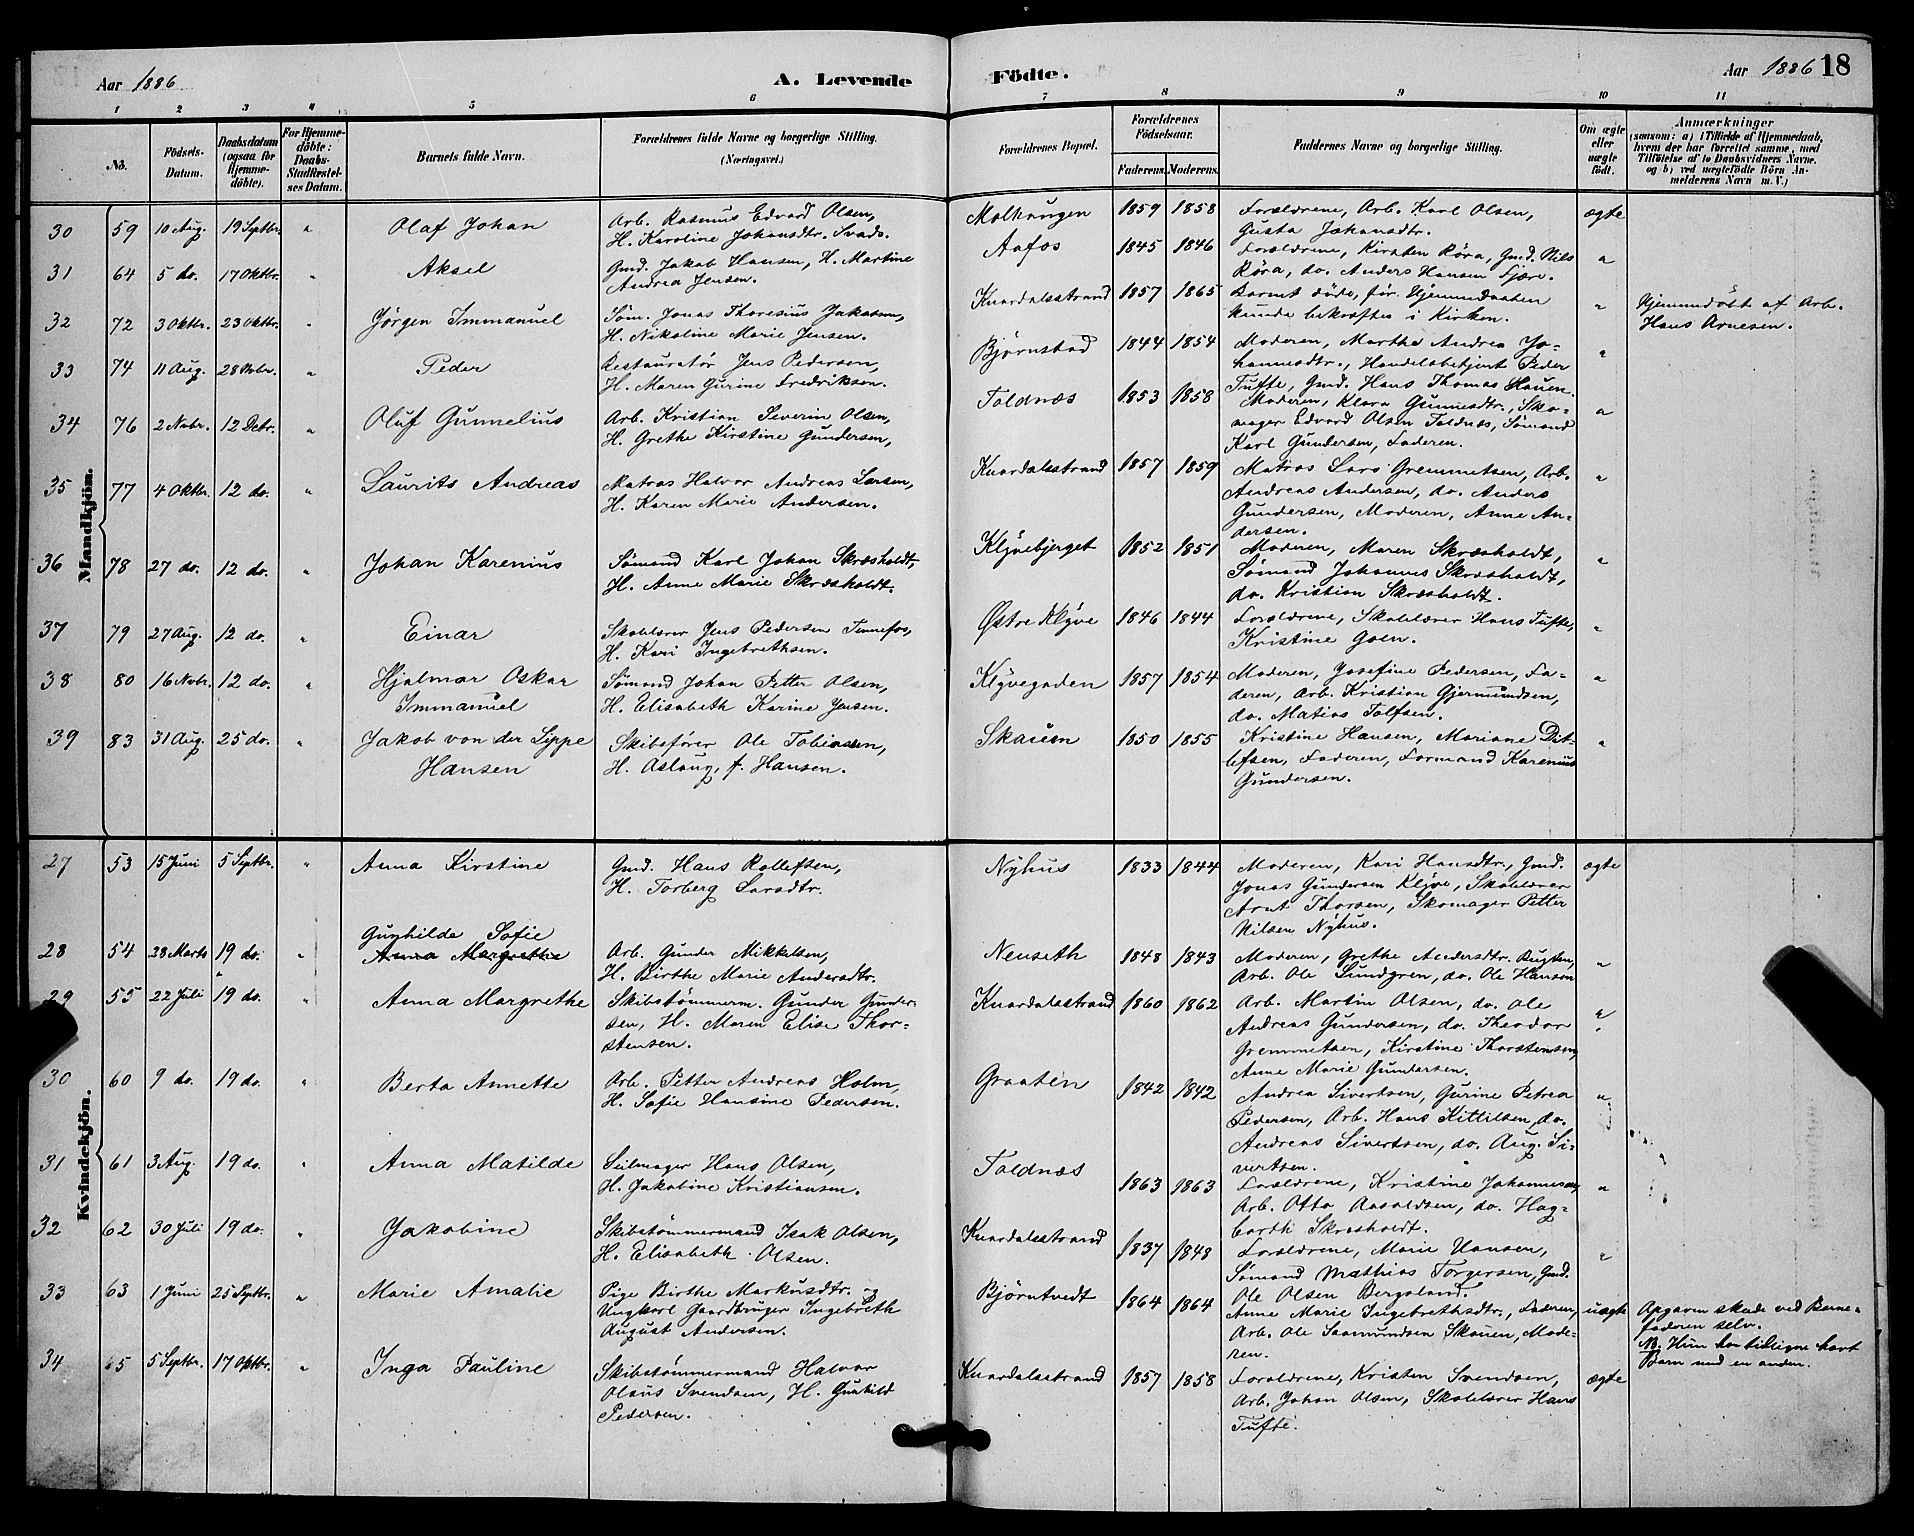 Aar 1886
A. Levende
Födte.
Aar 1886 18
1 2 3 4 5 6 7 8 9 10 11
No.
Födsels-
Datum.
Daabsdatum
(ogsaa for
Hjemme-
döbte).
For Hjemme-
döbte:
Daabs-
Stadfæstel-
ses Datum.
Barnets fulde Navn.
Forældrenes fulde Navne og borgerlige Stilling.
(Næringsvei.)
Forældrenes Bopæl.
Forældrenes
Födselsaar.
Faderens. Moderens.
Faddernes Navne og borgerlige Stilling.
Om ægte
eller
uægte
födt.
Anmærkninger
(saasom: a) i Tilfælde af Hjemmedaab,
hvem der har forrettet samme, med
Tilföielse af to Daabsvidners Navne,
og b) ved uægtefödte Börn An-
melderens Navn m. V.)
Mandkjön.
30 59 10 Aug. 19 Septbr. " Olaf Johan
Arb. Rasmus Edvard Olsen,
H. Karoline Johansdtr. Svads.
Molhaugen 1859 1858
Forældrene, Arb. Karl Olsen,
Gusta Johansdtr.
ægte
31 64 5 do. 17 Oktbr. " Aksel
Gmd. Jakob Hansen, H. Martine
Andrea Jensen.
Aafos 1845 1846
Forældrene, Kirsten Röra, Gmd. Nils
Röra, do. Anders Hansen Fjære.
"
32 72 3 Oktbr. 23 Oktbr. " Jörgen Immanuel
Söm. Jonas Thoresius Jakobsen,
H. Nikoline Marie Jensen.
Knardalsstrand 1857 1865
Barnet döde, för Hjemmedaaben
kunde bekræftes i Kirken.
"
Hjemmedöbt af Arb.
Hans Arnesen.
33 74 11 Aug. 28 Nobr. " Peder
Restauratør Jens Pedersen,
H. Maren Gurine Fredriksen.
Bjørnstad 1844 1854
Moderen, Marthe Andrea Jo-
hannesdtr., Handelsbetjent Peder
Tufte, Gmd. Hans Thomas Hauen.
"
34 76 2 Nobr. 12 Debr. " Oluf Gunnelius
Arb. Kristian Severin Olsen,
H. Grethe Kirstine Gundersen,
Toldnæs 1853 1858
Moderen, Klara Gunnesdtr., Sko-
mager Edvard Olsen Toldnæs, Sømand
Karl Gundersen, Faderen.
"
35 77 4 Oktbr. 12 do. " Laurits Andreas
Matros Halvor Andreas Larsen,
H. Karen Marie Andersen.
Knardalsstrand 1857 1859
Matros Lars Gremmetsen, Arb.
Andreas Andersen, do. Anders
Gundersen, Moderen, Anne An-
dersen.
"
36 78 27 do. 12 do. " Johan Karenius
Sømand Karl Johan Skræsholdt,
H. Anne Marie Skræsholdt.
Klyvebjerget 1852 1851
Moderen, Maren Skræsholdt,
Sømand Johannes Skræsholdt,
do. Kristian Skræsholdt.
"
37 79 27 Aug. 12 do. " Einar
Skolelærer Jens Pedersen Tinnefos,
H. Kari Ingebrethsen.
Østre Klyve 1846 1844
Forældrene, Skolelærer Hans Tufte,
Kristine Goen.
"
38 80 16 Nobr. 12 do. " Hjalmar Oskar
Immanuel
Sømand Johan Petter Olsen,
H. Elisabeth Karine Jensen.
Klyvegaden 1857 1854
Moderen, Josefine Pedersen, Fa-
deren, Arb. Kristian Gjermundsen,
do. Matias Tolfsen.
"
39 83 31 Aug. 25 do. " Jakob von der Lippe
Hansen
Skibsfører Ole Tobiassen,
H. Aslaug, f. Hansen.
Skauen 1850 1855
Kristine Hansen, Mariane Dit-
lefsen, Faderen, Formand Karenius
Gundersen.
"
Kvindekjön.
27 53 15 Juni 5 Septbr. " Anna Kirstine
Gmd. Hans Rolleftsen,
H. Torberg Larsdtr.
Nyhus 1833 1844
Moderen, Kari Hansdtr., Gmd.
Jonas Gundersen Klyve, Skolelærer
Arnt Thorsen, Skomager Petter
Nilsen Nyhus.
ægte
Gunhilde Sofie
28 54 28 Marts 19 do. " Anna Margrethe
Arb. Gunder Mikkelsen,
H. Birthe Marie Andersdtr.
Nenseth 1848 1843
Moderen, Grethe Andersdtr. Rugten,
Arb. Ole Lundgren, do. Ole Hansen
"
29 55 22 Juli 19 do. " Anna Margrethe
Skibstømmerm. Gunder Gunder-
sen, H. Maren Elise Thor-
stensen.
Knardalsstrand 1860 1862
Arb. Martin Olsen, do. Ole
Andreas Gundersen, do. Theodor
Gremmetsen, Kirstine Thorstensen,
Anne Marie Gundersen.
"
30 60 9 do. 19 do. " Berta Annette
Arb. Petter Andreas Holm,
H. Sofie Hansine Pedersen.
Graaten 1842 1842
Andrea Sivertsen, Gurine Petrea
Pedersen, Arb. Hans Kittilsen, do.
Andreas Sivertsen, do. Aug. Si-
vertsen.
"
31 61 3 Aug. 19 do. " Anna Matilde
Seilmager Hans Olsen,
H. Jakobine Kristiansen.
Toldnæs 1863 1863
Forældrene, Kristine Johannesen,
Arb. Otto Aasoldsen, do. Hag-
barth Skræsholdt.
"
32 62 30 Juli 19 do. " Jakobine
Skibstømmermand Isak Olsen,
H. Elisabeth Olsen.
Knardalsstrand 1837 1848
Forældrene, Marie Hansen,
Sømand Mathias Torgersen, Gmd.
Ole Olsen Bergsland.
"
33 63 1 Juni 25 Septbr. " Marie Amalie
Pige Birthe Markusdtr. og
Ungkarl Gaardbruger Ingebreth
August Andersen.
Bjørntvedt 1864 1864
Anne Marie Ingebrethsdtr., Faderen,
Arb. Ole Saamundsen Skauen, Mode-
ren.
uægte
Opgaven skede ved Barne-
faderen selv.
NB. Hun har tidligere havt
Barn med en anden.
34 65 5 Septbr. 17 Oktbr. " Inga Pauline
Skibstømmermand Halvor
Olaus Svendsen, H. Gunhild
Pedersen.
Knardalsstrand 1857 1858
Forældrene, Kristen Svendsen,
Arb. Johan Olsen, Skolelærer Hans
Tufte.
ægte